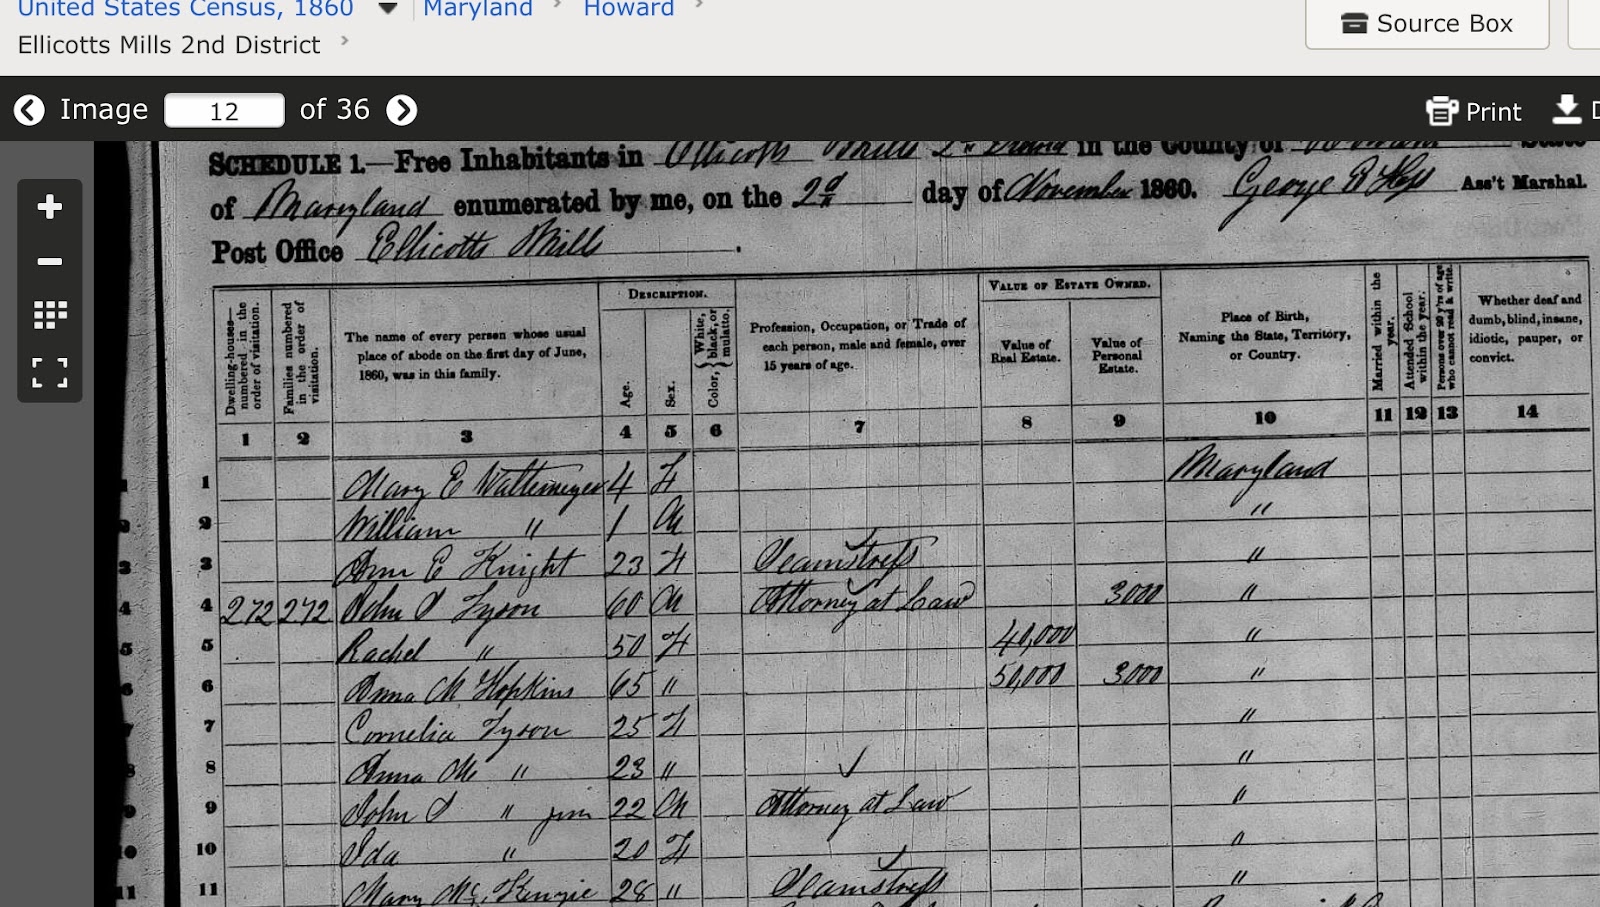 United States Census, 1860 Maryland Howard
Ellicotts Mills 2nd District
Source Box
Image 12 of 36
Print D
SCHEDULE 1.—Free Inhabitants in Ellicotts Mills 2nd in the County of State
of Maryland enumerated by me, on the 2d day of November 1860. George Ass't Marshal.
Post Office Ellicotts Mills .
Dwelling-houses—numbered in the order of visitation.
Families numbered in the order of visitation.
The name of every person whose usual place of abode on the first day of June, 1860, was in this family.
DESCRIPTION.
Age.
Sex.
Color, { White, black, or mulatto.
Profession, Occupation, or Trade of each person, male and female, over 15 years of age.
VALUE OF ESTATE OWNED.
Value of Real Estate.
Value of Personal Estate.
Place of Birth, Naming the State, Territory, or Country.
Married within the year.
Attended School within the year.
Persons over 20 y'rs of age who cannot read & write.
Whether deaf and dumb, blind, insane, idiotic, pauper, or convict.
1 2 3 4 5 6 7 8 9 10 11 12 13 14
1 Mary E Waltemeyer 4 F Maryland
2 William " 1 M "
3 Ann E Knight 23 F Seamstress "
4 272 272 John S Tyson 60 M Attorney at Law 3000 "
5 Rachel " 50 F 40,000 "
6 Anna M Hopkins 65 " 50,000 3000 "
7 Cornelia Tyson 25 F "
8 Anna Mc " 23 " "
9 John S " jun 22 M Attorney at Law "
10 Ida " 20 F "
11 Mary McKenzie 28 " Seamstress "